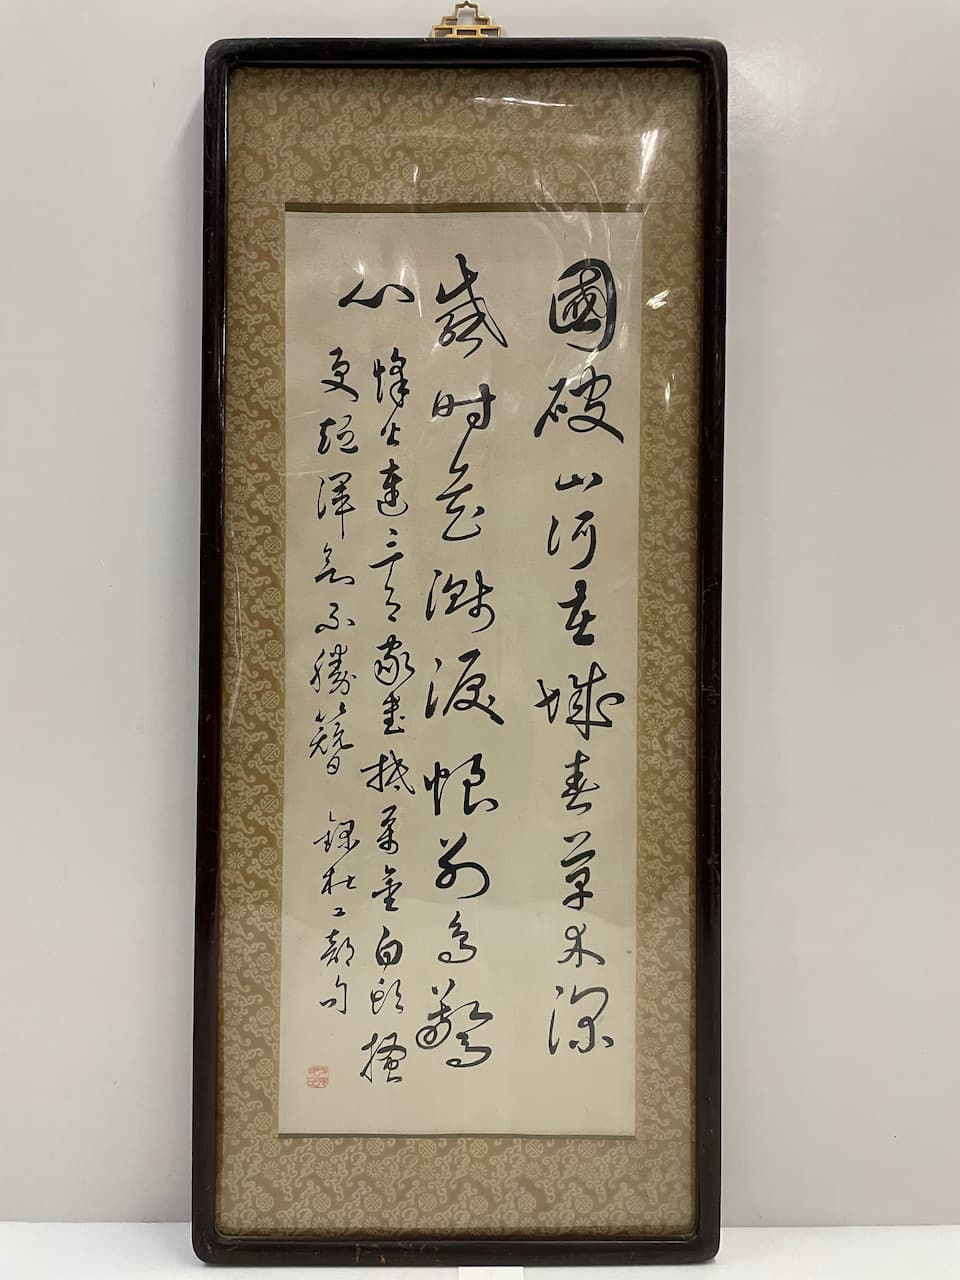 國破山河在城春草木深
感時花濺淚恨別鳥驚
心烽火連三月家書抵萬金白頭搔
更短渾欲不勝簪 錄杜工部句